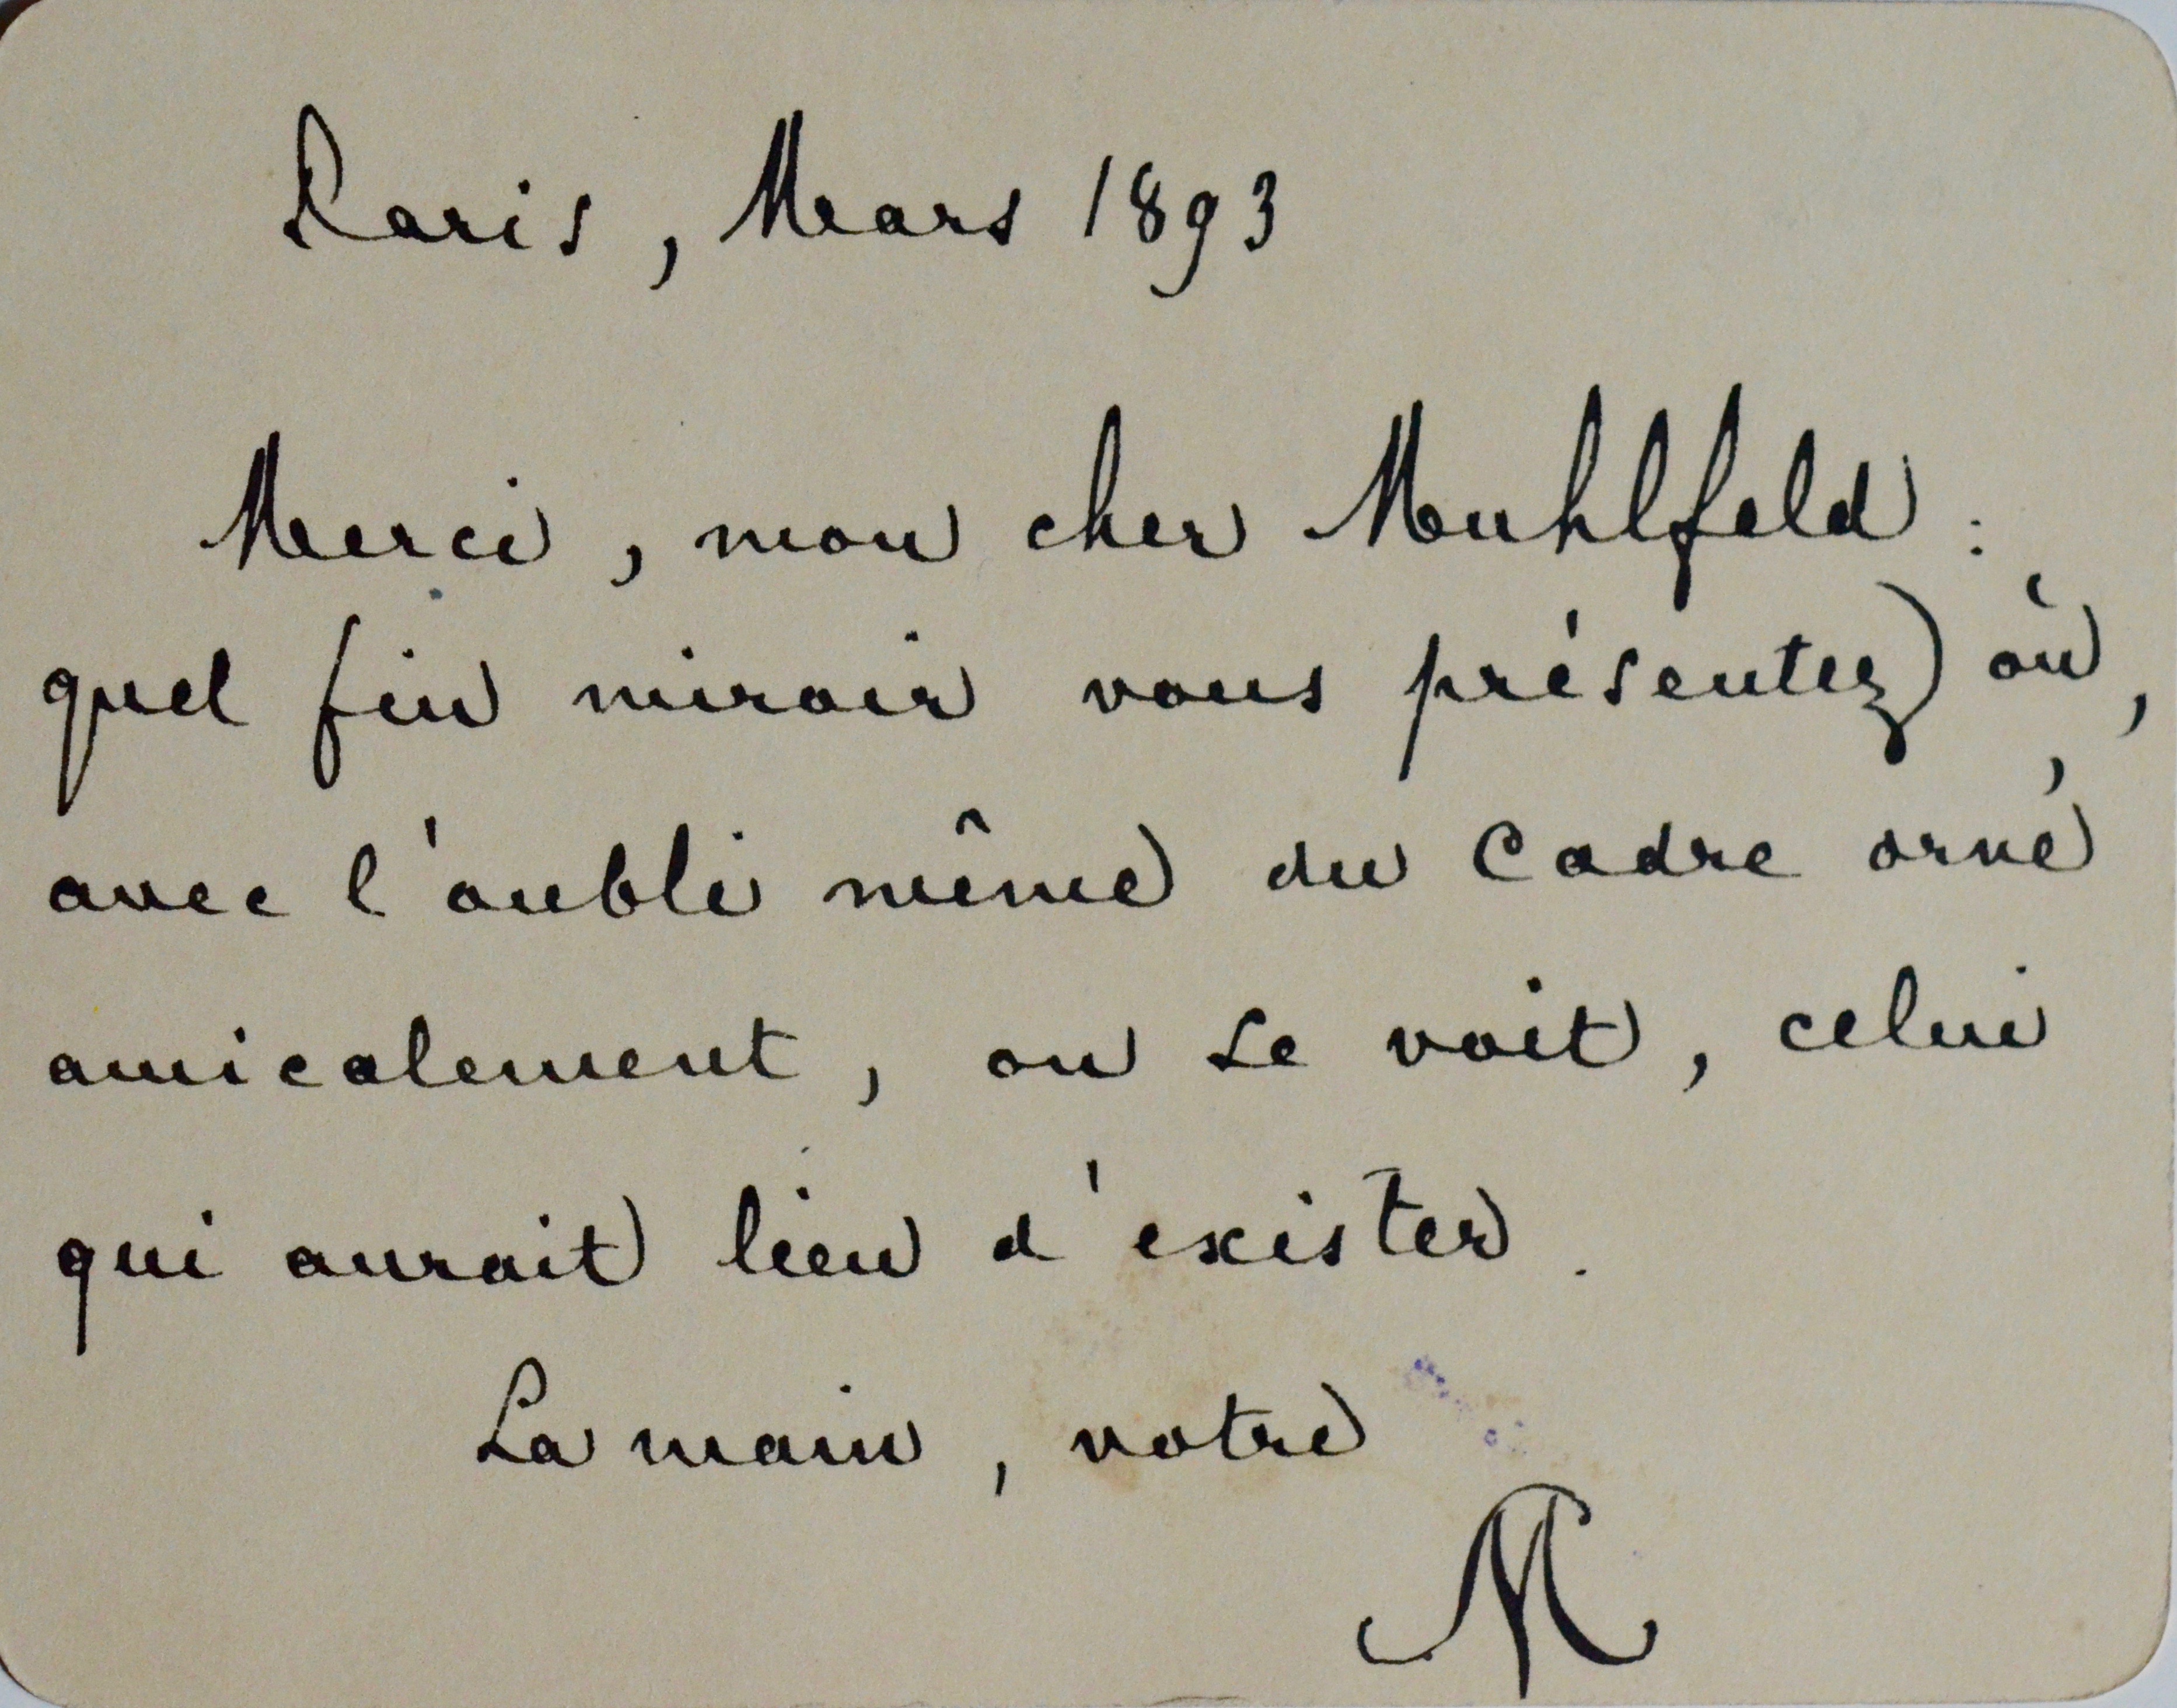 Paris, Mars 1893
Merci, mon cher Muhlfeld :
quel fin miroir vous présentez où,
avec l'oubli même du cadre orné
amicalement, on se voit, celui
qui aurait lieu d'exister.
La main, votre
M